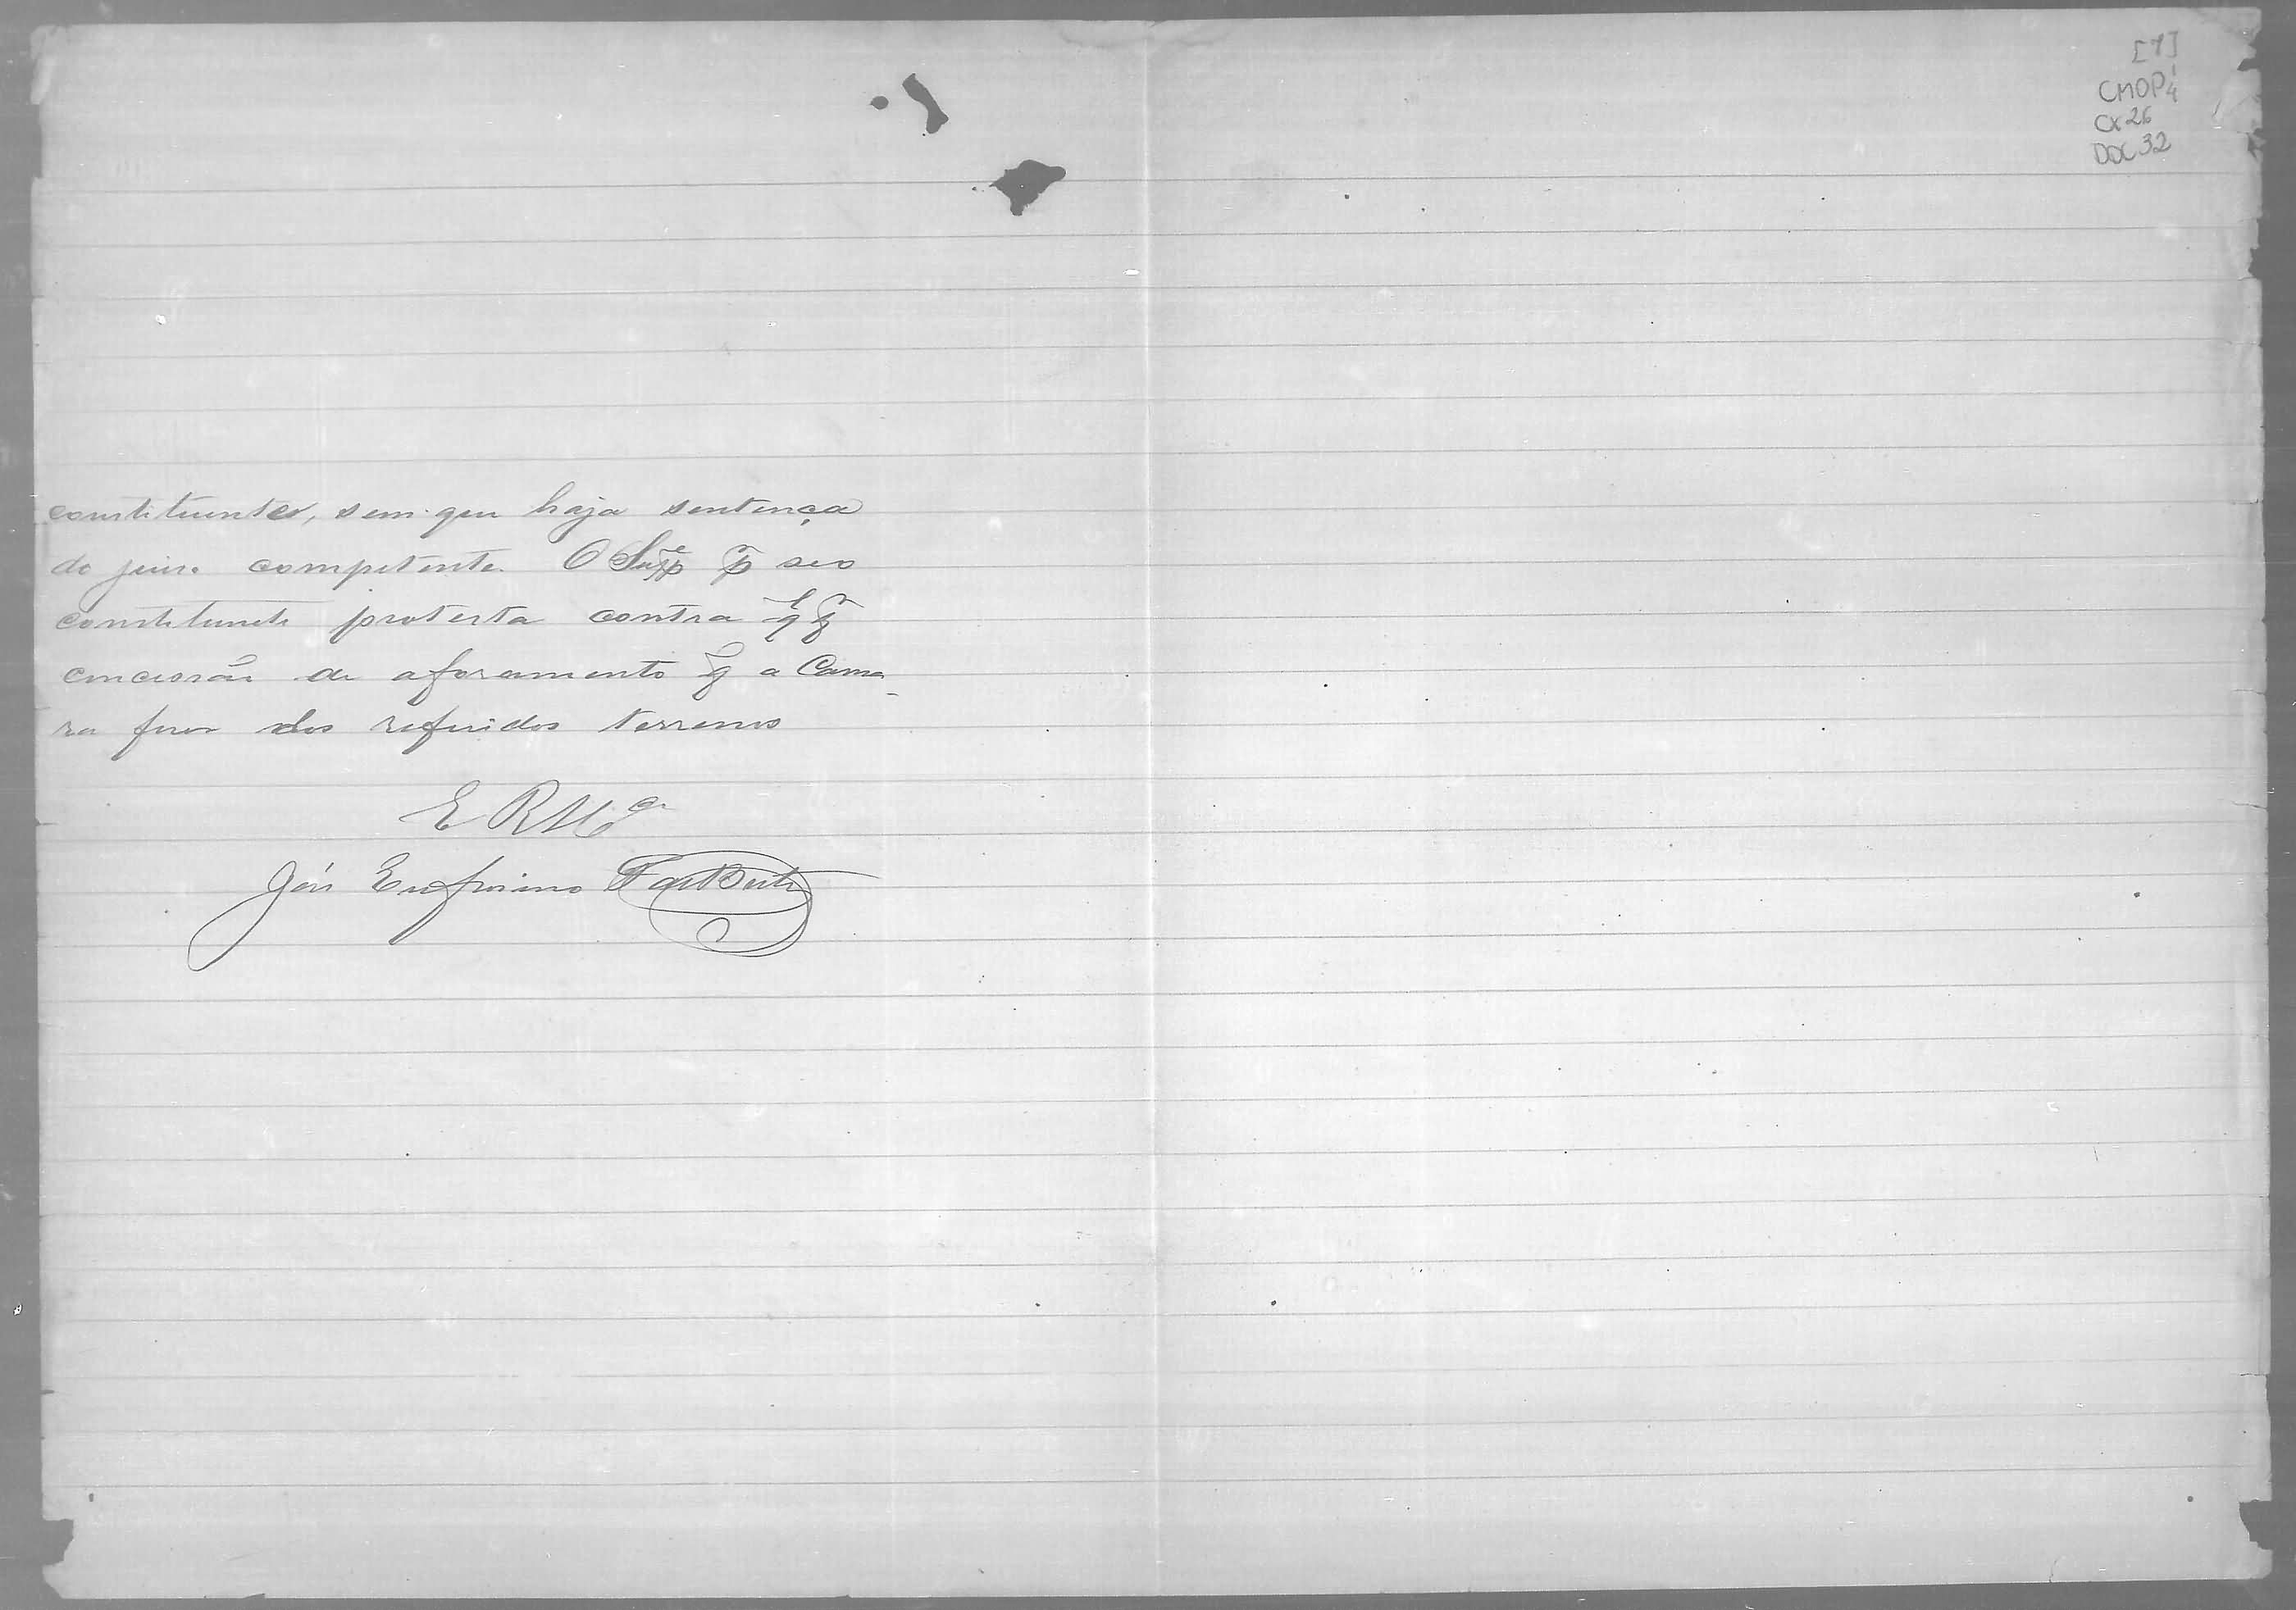 [1]
CMOP 4
CX 26
DOC 32
constituintes, sem que haja sentença
do juiso competente. O Supp.e p.r seo
constituinte protesta contra q.l q.r
concessão de aforamento q a Cama-
ra fizer dos referidos terrenos
E R M.ce
José Eufrosino